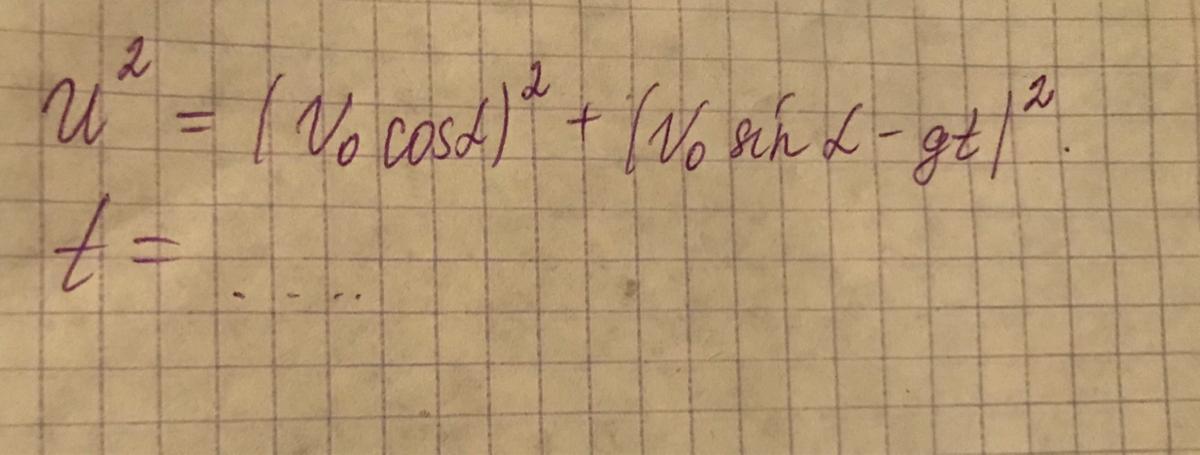 u² = (v₀ cosα)² + (v₀ sin α - gt)².
t = ....